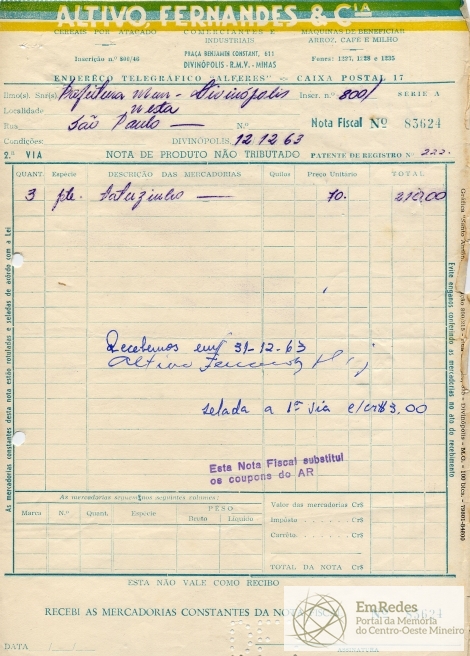 ALTIVO FERNANDES & CIA
CEREAIS POR ATACADO COMERCIANTES E INDUSTRIAIS MÁQUINAS DE BENEFICIAR ARROZ, CAFÉ E MILHO
Inscrição n.º 800/46 PRAÇA BENJAMIN CONSTANT, 611 Fones: 1227, 1228 e 1235
DIVINÓPOLIS - R.M.V. - MINAS
ENDERÊÇO TELEGRÁFICO "ALFERES" — CAIXA POSTAL 17
Ilmo(s). Snr(s). Prefeitura Mun. Divinópolis Inscr. n.º 800/ SERIE A
Localidade Nesta
Rua São Paulo — N.º Nota Fiscal Nº 83624
Condições: DIVINÓPOLIS, 12 12 63
2.ª VIA NOTA DE PRODUTO NÃO TRIBUTADO PATENTE DE REGISTRO Nº 222.
QUANT. Espécie DESCRIÇÃO DAS MERCADORIAS Quilos Preço Unitário TOTAL
3 pte. 70. 210,00
Recebemos em 31-12-63
Altivo Fernandes & Cia
selada a 1ª via c/cr$3,00
Esta Nota Fiscal substitui
os coupons do AR
As mercadorias seguem nos seguintes volumes:
Marca N.º Quant. Espécie PESO
Bruto Líquido
Valor das mercadorias Cr$
Impôsto Cr$
Carrêto Cr$
TOTAL DA NOTA Cr$
ESTA NÃO VALE COMO RECIBO
RECEBI AS MERCADORIAS CONSTANTES DA NOTA FISCAL Nº 83624
DATA
ASSINATURA
As mercadorias constantes desta nota estão rotuladas e seladas de acôrdo com a Lei
Evite enganos conferindo as mercadorias no ato do recebimento
EmRedes
Portal da Memória
do Centro-Oeste Mineiro